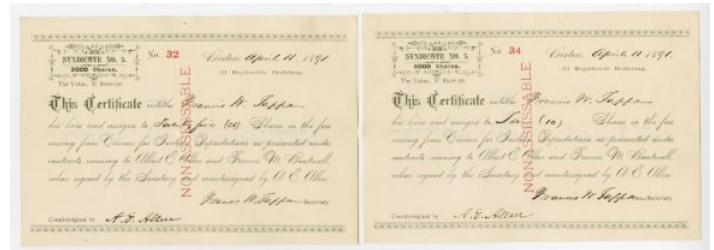 SYNDICATE NO. 5.
5000 Shares.
Par Value, $100.00
No. 32
Boston, April 11 1891.
51 Equitable Building.
NON-ASSESSABLE.
This Certificate entitles Francis W. Tappan
his heirs and assigns to Twenty five (25) Shares in the fees
arising from Claims for Indian Depredations as presented under
contracts running to Albert E. Allen and Francis M.
when signed by the Secretary and countersigned by A. E. Allen
Francis W. Tappan Secretary.
Countersigned by A. E. Allen
SYNDICATE NO. 5.
5000 Shares.
Par Value, $100.00
No. 34
Boston, April 11 1891.
51 Equitable Building.
NON-ASSESSABLE.
This Certificate entitles Francis W. Tappan
his heirs and assigns to Ten (10) Shares in the fees
arising from Claims for Indian Depredations as presented under
contracts running to Albert E. Allen and Francis M.
when signed by the Secretary and countersigned by A. E. Allen
Francis W. Tappan Secretary.
Countersigned by A. E. Allen